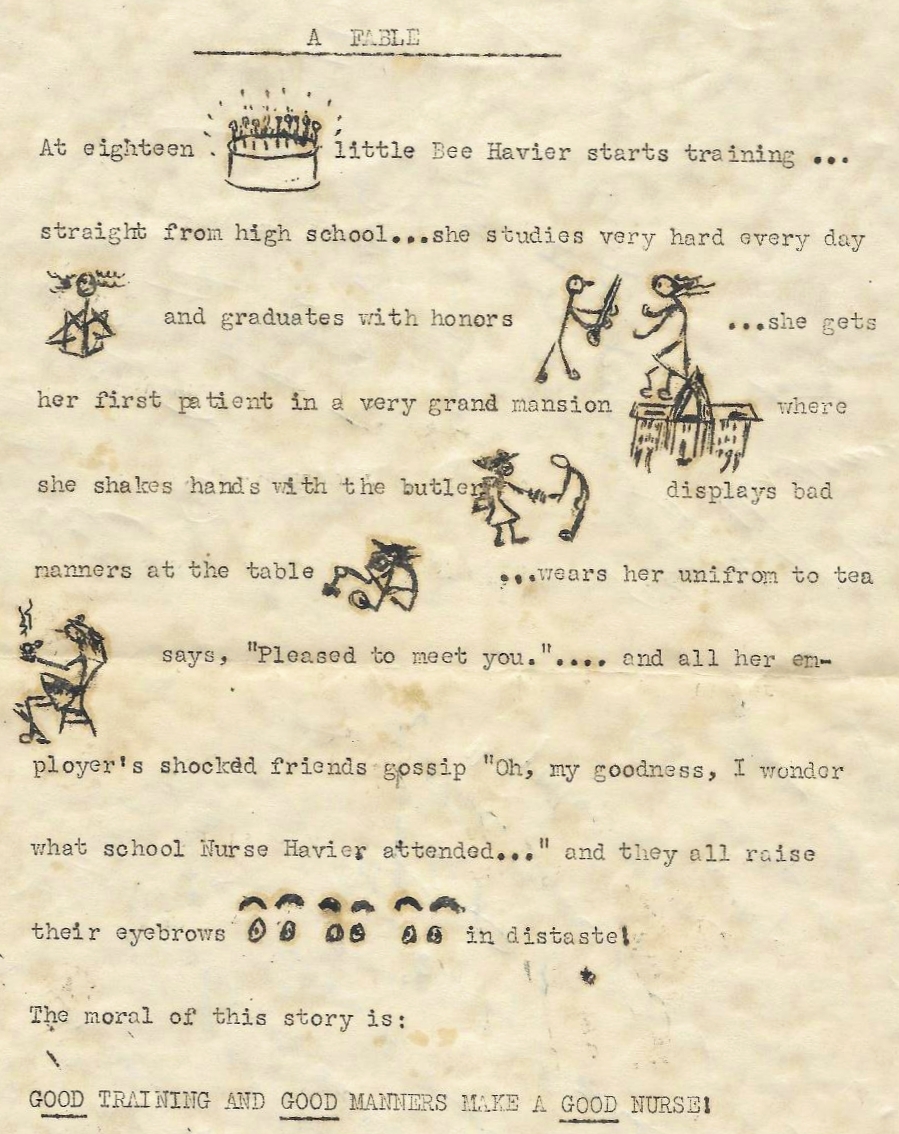 A FABLE
At eighteen . little Bee Havier starts training ...
straight from high school...she studies very hard every day
and graduates with honors ...she gets
her first patient in a very grand mansion where
she shakes hands with the butler displays bad
manners at the table ...wears her unifrom to tea
says, "Pleased to meet you.".... and all her em-
ployer's shocked friends gossip "Oh, my goodness, I wonder
what school Nurse Havier attended..." and they all raise
their eyebrows in distaste!
The moral of this story is:
GOOD TRAINING AND GOOD MANNERS MAKE A GOOD NURSE!